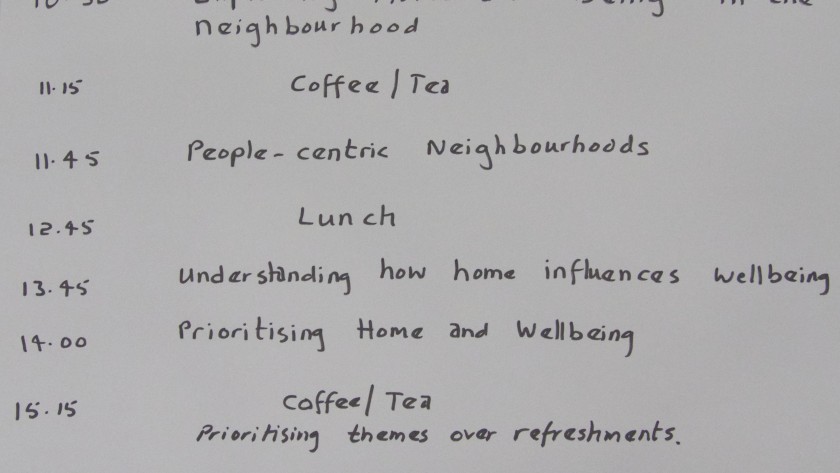 neighbourhood
11.15 Coffee / Tea
11.45 People-centric Neighbourhoods
12.45 Lunch
13.45 Understanding how home influences wellbeing
14.00 Prioritising Home and Wellbeing
15.15 Coffee/ Tea
Prioritising themes over refreshments.